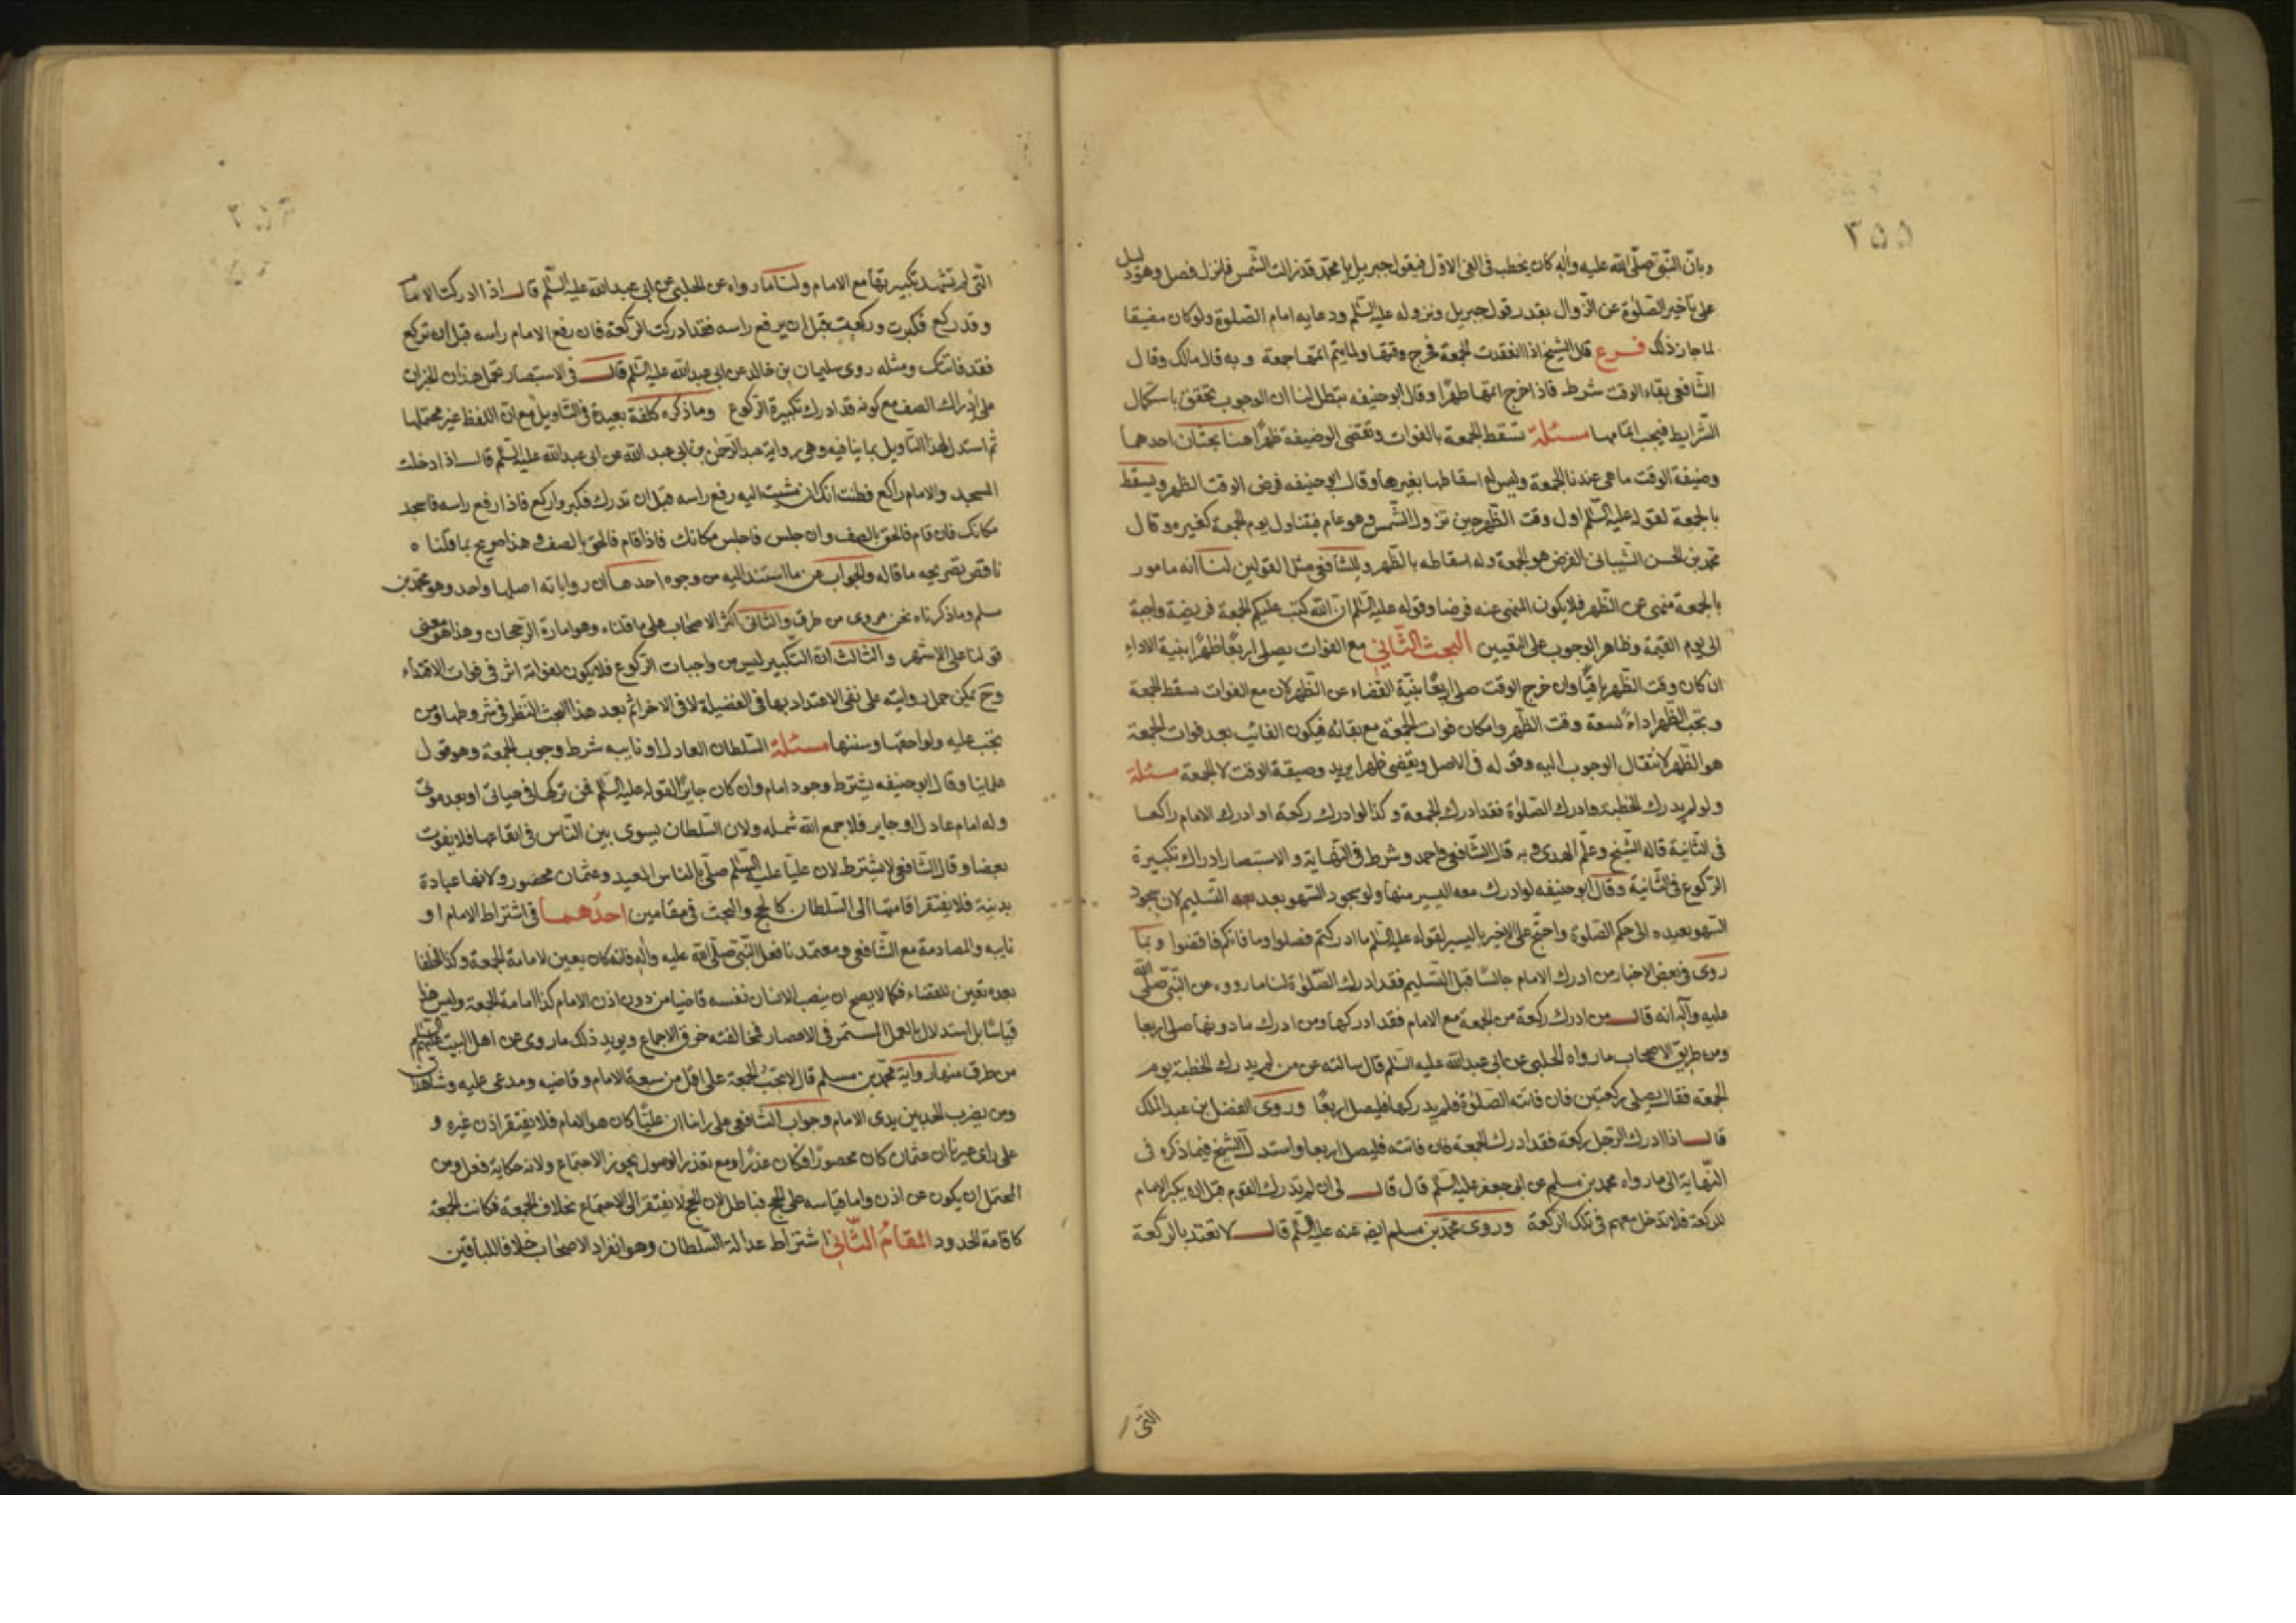 ٣٥٥
وبان النبي صلى الله عليه واله كان يخطب في الفئ الاول فيقول جبريل يا محمد قد زالت الشمس فانزل فصل وهو دليل
على تأخير الصلوة عن الزوال بقدر قول جبريل ونزوله عليه السلم ودعايه امام الصلوة ولو كان مضيقا
لما جاز ذلك فرع قال الشيخ اذا انعقدت الجمعة فخرج وقتها ولما يتم اتمها جمعة وبه قال مالك وقال
الشافعي بقاء الوقت شرط فاذا خرج اتمها ظهرا وقال ابو حنيفه تبطل لنا ان الوجوب تحقق باستكمال
الشرايط فيجب اتمامها مسئلة تسقط الجمعة بالفوات وتقضى الوضيفة ظهرا هنا بحثان احدهما
وضيفة الوقت ما هي عندنا الجمعة وليس له اسقاطها بغيرها وقال ابو حنيفه فرض الوقت الظهر ويسقط
بالجمعة لقوله عليه السلم اول وقت الظهر حين تزول الشمس وهو عام فيتناول يوم الجمعة كغيره وقال
محمد بن الحسن الشيباني الفرض هو الجمعة وله اسقاطه بالظهر وللشافعي مثل القولين لنا انه مامور
بالجمعة منهي عن الظهر فلا يكون المنهي عنه فرضا وقوله عليه السلم ان الله كتب عليكم الجمعة فريضة واجبة
الى يوم القيمة وظاهر الوجوب على التعيين البحث الثاني مع الفوات يصلى اربعا ظهرا بنية الاداء
ان كان وقت الظهر باقيا وان خرج الوقت صلى اربعا بنية القضاء عن الظهر لان مع الفوات تسقط الجمعة
وتجب الظهر اداء لسعة وقت الظهر وامكان فوات الجمعة مع بقائه فيكون الفائت بعد فوات الجمعة
هو الظهر لانتقال الوجوب اليه وقوله في الاصل ويقضى ظهرا يريد وصيفة الوقت لا الجمعة مسئلة
ولو لم يدرك الخطبة وادرك الصلوة فقد ادرك الجمعة وكذا لو ادرك ركعة او ادرك الامام راكعا
في الثانية قاله الشيخ وعلم الهدى وبه قال الشافعي واحمد وشرط في النهاية والاستبصار ادراك تكبيرة
الركوع في الثانية وقال ابو حنيفه لو ادرك معه اليسير منها ولو بجود السهو بعد التسليم لان سجود
السهو يعيده الى حكم الصلوة واحتج على الاخير باليسير لقوله عليه السلم ما ادركتم فصلوا وما فاتكم فاقضوا وبما
روى في بعض الاخبار من ادرك الامام جالسا قبل التسليم فقد ادرك الصلوة لنا ما رووه عن النبي صلى الله
عليه وآله انه قال من ادرك ركعة من الجمعة مع الامام فقد ادركها ومن ادرك ما دونها صلى اربعا
ومن طريق الاصحاب ما رواه الحلبي عن ابي عبد الله عليه السلم قال سالته عن من لم يدرك الخطبة يوم
الجمعة فقال يصلى ركعتين فان فاتته الصلوة فلم يدركها فليصل اربعا وروى الفضل بن عبد الملك
قال اذا ادرك الرجل ركعة فقد ادرك الجمعة فان فاتته فليصل اربعا واستدل الشيخ فيما ذكره في
النهاية الى ما رواه محمد بن مسلم عن ابي جعفر عليه السلم قال قال لي ان لم تدرك القوم قبل ان يكبر الامام
للركعة فلا تدخل معهم في تلك الركعة وروى محمد بن مسلم ايضا عنه عليه السلم قال لا تعتد بالركعة
التي
التي لم تشهد تكبيرتها مع الامام ولنا ما رواه عن الحلبي عن ابي عبد الله عليه السلم قال اذا ادركت الامام
وقد ركع فكبرت وركعت قبل ان يرفع راسه فقد ادركت الركعة فان رفع الامام راسه قبل ان تركع
فقد فاتتك ومثله روى سليمان بن خالد عن ابي عبد الله عليه السلم قال في الاستبصار تحمل هذان الخبران
على ادراك الصف مع كونه قد ادرك تكبيرة الركوع وما ذكره كلفة بعيدة في التاويل مع ان اللفظ غير محتملها
ثم استدل لهذا التاويل بما ينافيه وهي رواية عبد الرحمن بن ابي عبد الله عن ابي عبد الله عليه السلم قال اذا دخلت
المسجد والامام راكع فظننت انك ان مشيت اليه رفع راسه قبل ان تدرك فكبر واركع فاذا رفع راسه فاسجد
مكانك فان قام فالحق بالصف وان جلس فاجلس مكانك فاذا قام فالحق بالصف وهذا صريح بما قلناه
ناقض تصريحه ما قاله والجواب عن ما استند اليه من وجوه احدها ان رواياته اصلها واحد وهو محمد بن
مسلم وما ذكرناه نحن مروى من طرق والثاني اكثر الاصحاب على ما قلناه وهو امارة الرجحان وهذا هو معنى
قولنا على الاشهر والثالث ان التكبير ليس من واجبات الركوع فلا يكون لفواته اثر في فوات الاقتداء
وح يمكن حمل روايته على نفى الاعتداد بها في الفضيلة لا في الاخر اثم بعد هذا البحث النظر في شروطها ومن
تجب عليه ولواحقها وسننها مسئلة السلطان العادل او نايبه شرط وجوب الجمعة وهو قول
علماينا وقال ابو حنيفه يشترط وجود امام وان كان جايرا لقوله عليه السلم فمن تركها في حياتي او بعد موتى
وله امام عادل او جاير فلا جمع الله شمله ولان السلطان يسوى بين الناس في ايقاعها فلا يفوت
بعضا وقال الشافعي لا يشترط لان عليا عليه السلم صلى بالناس العيد وعثمان محصور ولانها عبادة
بدنية فلا يفتقر اقامتها الى السلطان كالحج والبحث في مقامين احدهما في اشتراط الامام او
نايبه والمصادمة مع الشافعي ومعتمدنا فعل النبي صلى الله عليه واله فانه كان يعين لامامة الجمعة وكذا الخلفا
بعده تعين للقضاء فكما لا يصح ان ينصب الانسان نفسه قاضيا من دون اذن الامام كذا امامة الجمعة وليس هذا
قياسا بل استدلال بالعمل المستمر في الاعصار فمخالفته خرق الاجماع ويويد ذلك ما روى عن اهل البيت عليهم السلم
من طرق منها رواية محمد بن مسلم قال لا تجب الجمعة على اقل من سبعة الامام وقاضيه ومدعى عليه وشاهدان
ومن يضرب الحد بين يدى الامام وجواب الشافعي على راينا ان عليا كان هو الامام فلا يفتقر اذن غيره و
على راى غيرنا ان عثمان كان محصورا فكان عذرا ومع تعذر الوصول يجوز الاجتماع ولانه حكاية فعل ومن
المحتمل ان يكون عن اذن واما قياسه على الحج فباطل لان الحج لا يفتقر الى الاجتماع بخلاف الجمعة فكانت الجمعة
كاقامة الحدود المقام الثاني اشتراط عدالة السلطان وهو انفراد الاصحاب خلافا للباقين